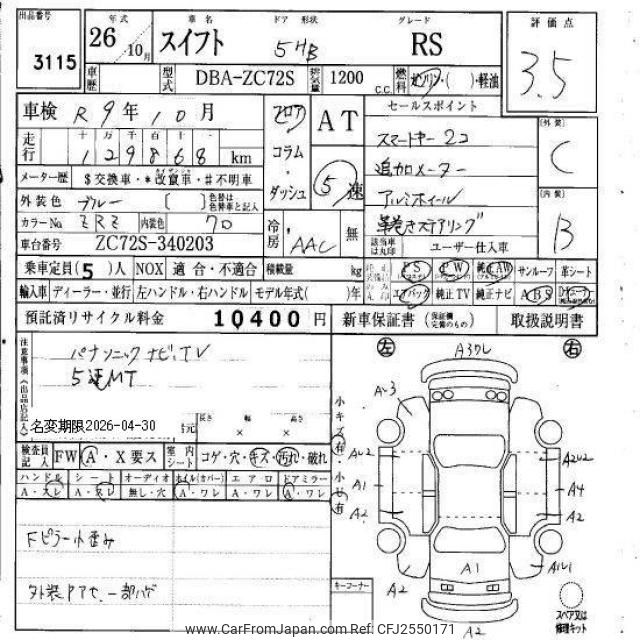 出品番号 年式 車名 ドア 形状 グレード 評価点
3115 26 10月 スイフト 5HB RS 3.5
車歴 型式 DBA-ZC72S 排気量 1200 c.c. 燃料 ガソリン・( )・軽油
車検 R 9年 10月 フロア AT セールスポイント [外装]
走行 十万千百十 129868 km コラム スマートキー 2コ C
メーター歴 $交換車・*改鼠車・#不明車 ダッシュ 5速 追加メーター
外装色 ブルー [ ] 色替は色替車と記入 アルミホイール [内装]
カラーNo ZRZ 内装色 70 冷房 AAC 無 革巻きステアリング B
車台番号 ZC72S-340203 該当車は丸印 ユーザー仕入車
乗車定員(5)人 NOX 適合・不適合 積載量 kg PS PW 純正AW サンルーフ 革シート
輸入車 ディーラー・並行 左ハンドル・右ハンドル モデル年式( )年 エアバック 純正TV 純正ナビ ABS
預託済リサイクル料金 10400 円 新車保証書 (保証欄完備のもの) 取扱説明書
注意事項(出品店記入)
パナソニック ナビ.TV
5速MT
名変期限2026-04-30
長さ 幅 高さ
× ×
検査員記入 FW A・X要ス 室内シート コゲ・穴・キズ・汚れ・破れ
ハンドル シート オーディオ ホイル(カバー) エアロ ドアミラー
A・スレ A・スレ 無し・穴 A・ワレ A・ワレ A・ワレ
Fピラー小歪み
外装Pアセ.一部ハゲ
小キズ有・小ヒ有
左 A3ワレ 右
A-3
AU2 A2U2
A1 A4
A2 A2
A1U1
A1
A2
A2
キーコーナー
スペア又は修理キット
www.CarFromJapan.com Ref: CFJ2550171